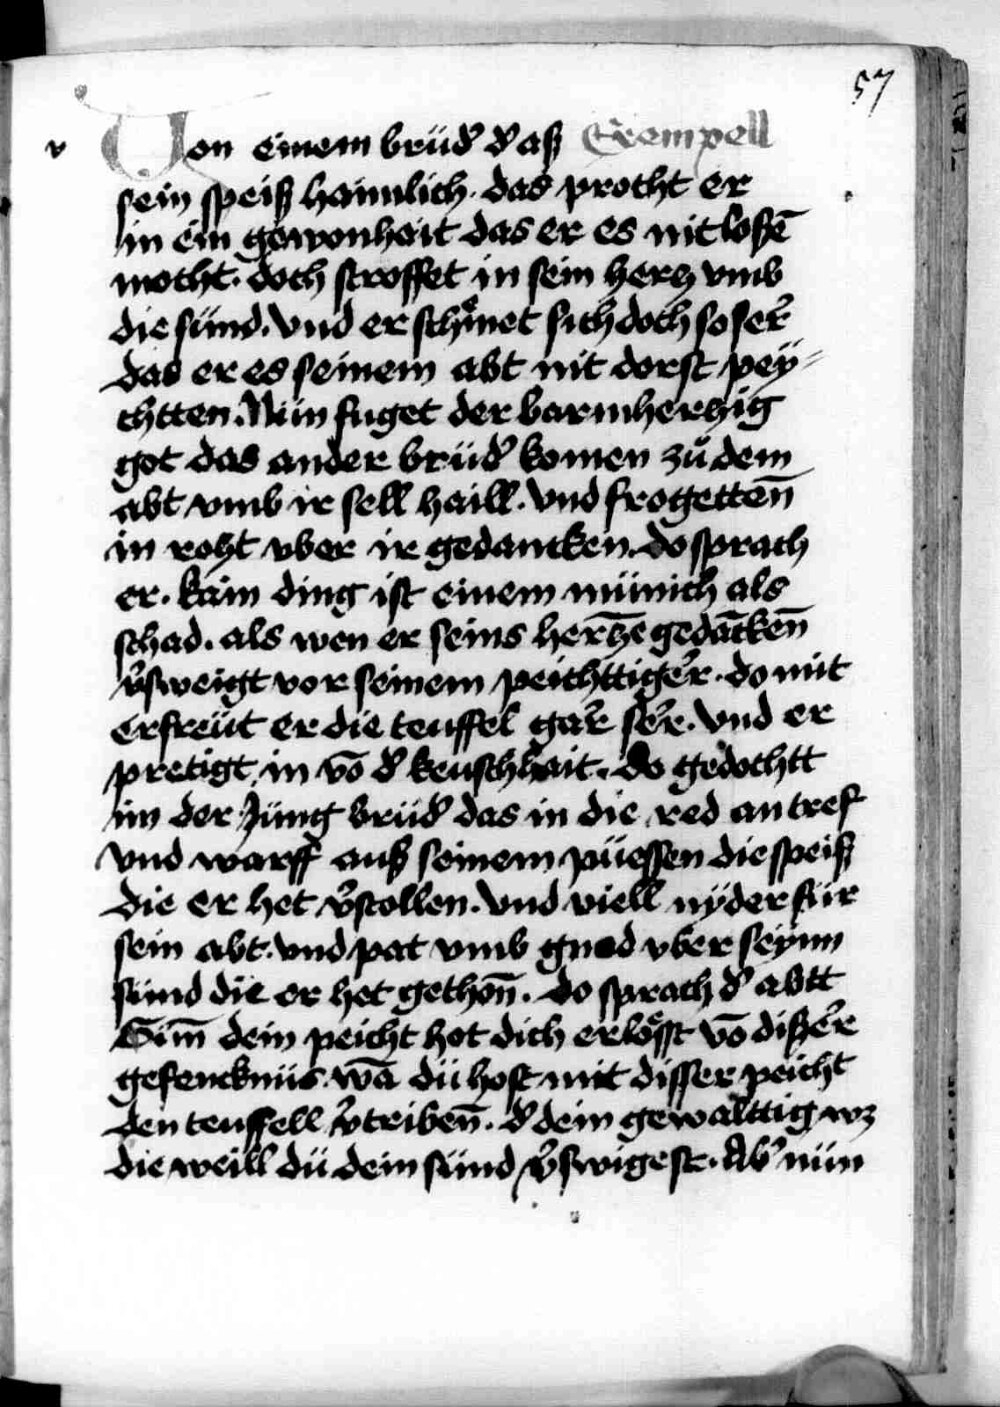 57
v Uon einem brüd' d' aß Exempell
sein speiß haimlich. das procht er
in ein gewonhait das er es nit loßē
mocht. doch stroffet in sein hercz vmb
die sünd. vnd er schemet sich doch so ser
das er es seinem abt nit dorst pey-
chtten. Nün fuget der barmherczig
got das ander brüd' komen zů dem
abt vmb ir sell haill. vnd frogetten̄
in roht vber ir gedancken. do sprach
er. kain ding ist einem münich als
schad. als wen er seins herczē gedācken̄
v'sweigt vor seinem peichttiger. do mit
erfreüt er die teuffel gar ser. vnd er
pretigt in vō d' keuschhait. do gedochtt
im der Jüng brüd' das in die red an tref
vnd warff auß seinem püessen die speiß
die er het v'stollen. vnd viell nyder für
sein abt. vnd pat vmb gnad vber seynn
sünd die er het gethon̄. do sprach d' abtt
Sün̄ dein peicht hot dich erlößt vō dißer
gefencknüs. wā dü host mit disser peicht
den teuffell v'triben̄. d' dein gewalttig wz
die weill dü dein sünd v'swigest. Ab' nün